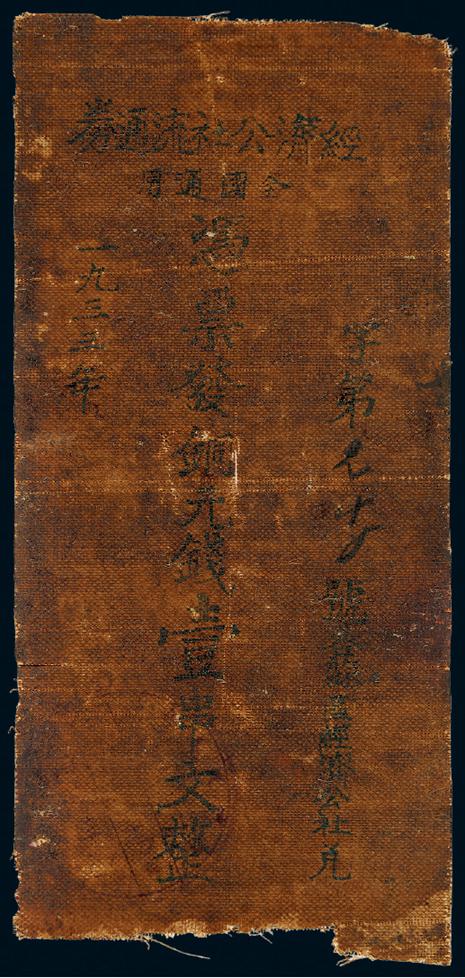 經濟公社流通券
全國通用
字第 號 經濟公社兑
憑票發銅元錢壹串文整
一九三五年